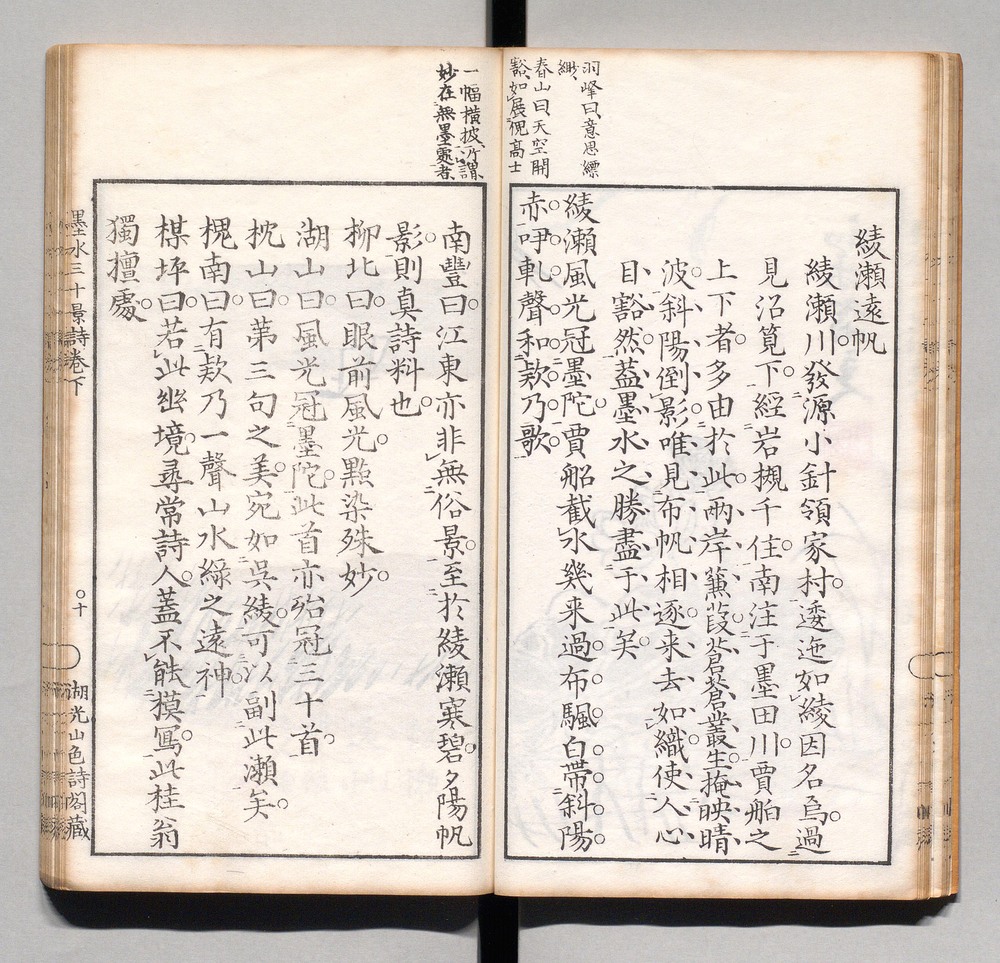 羽峰曰意思縹
緲
春山曰天空開
豁如展倪高士
一幅橫披所謂
妙在無墨處者
綾瀨遠帆
綾瀨川發源小針領家村逶迤如綾因名焉過
見沼筧下經岩槻千住南注于墨田川賈舶之
上下者多由於此兩岸蒹葭蒼蒼叢生掩映晴
波斜陽倒影唯見布帆相逐来去如織使人心
目豁然蓋墨水之勝盡于此矣
綾瀨風光冠墨陀賈船截水幾来過布颿白帶斜陽
赤咿軋聲和欵乃歌
南豐曰江東亦非無俗景至於綾瀨寒碧夕陽帆
影則真詩料也
柳北曰眼前風光點染殊妙
湖山曰風光冠墨陀此首亦殆冠三十首
枕山曰第三句之美宛如吳綾可以副此瀨矣
槐南曰有欵乃一聲山水綠之遠神
楳坪曰若此幽境尋常詩人蓋不能摸寫此桂翁
獨擅處
墨水三十景詩卷下
十
湖光山色詩閣藏